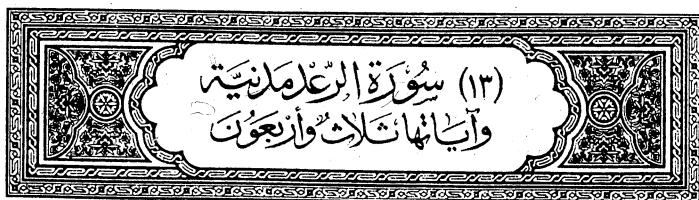 (١٣) سُورَة الرّعْد مَدَنيَّة
وَآيَاتهَا ثَلَاثٌ وَأَرْبَعُونَ